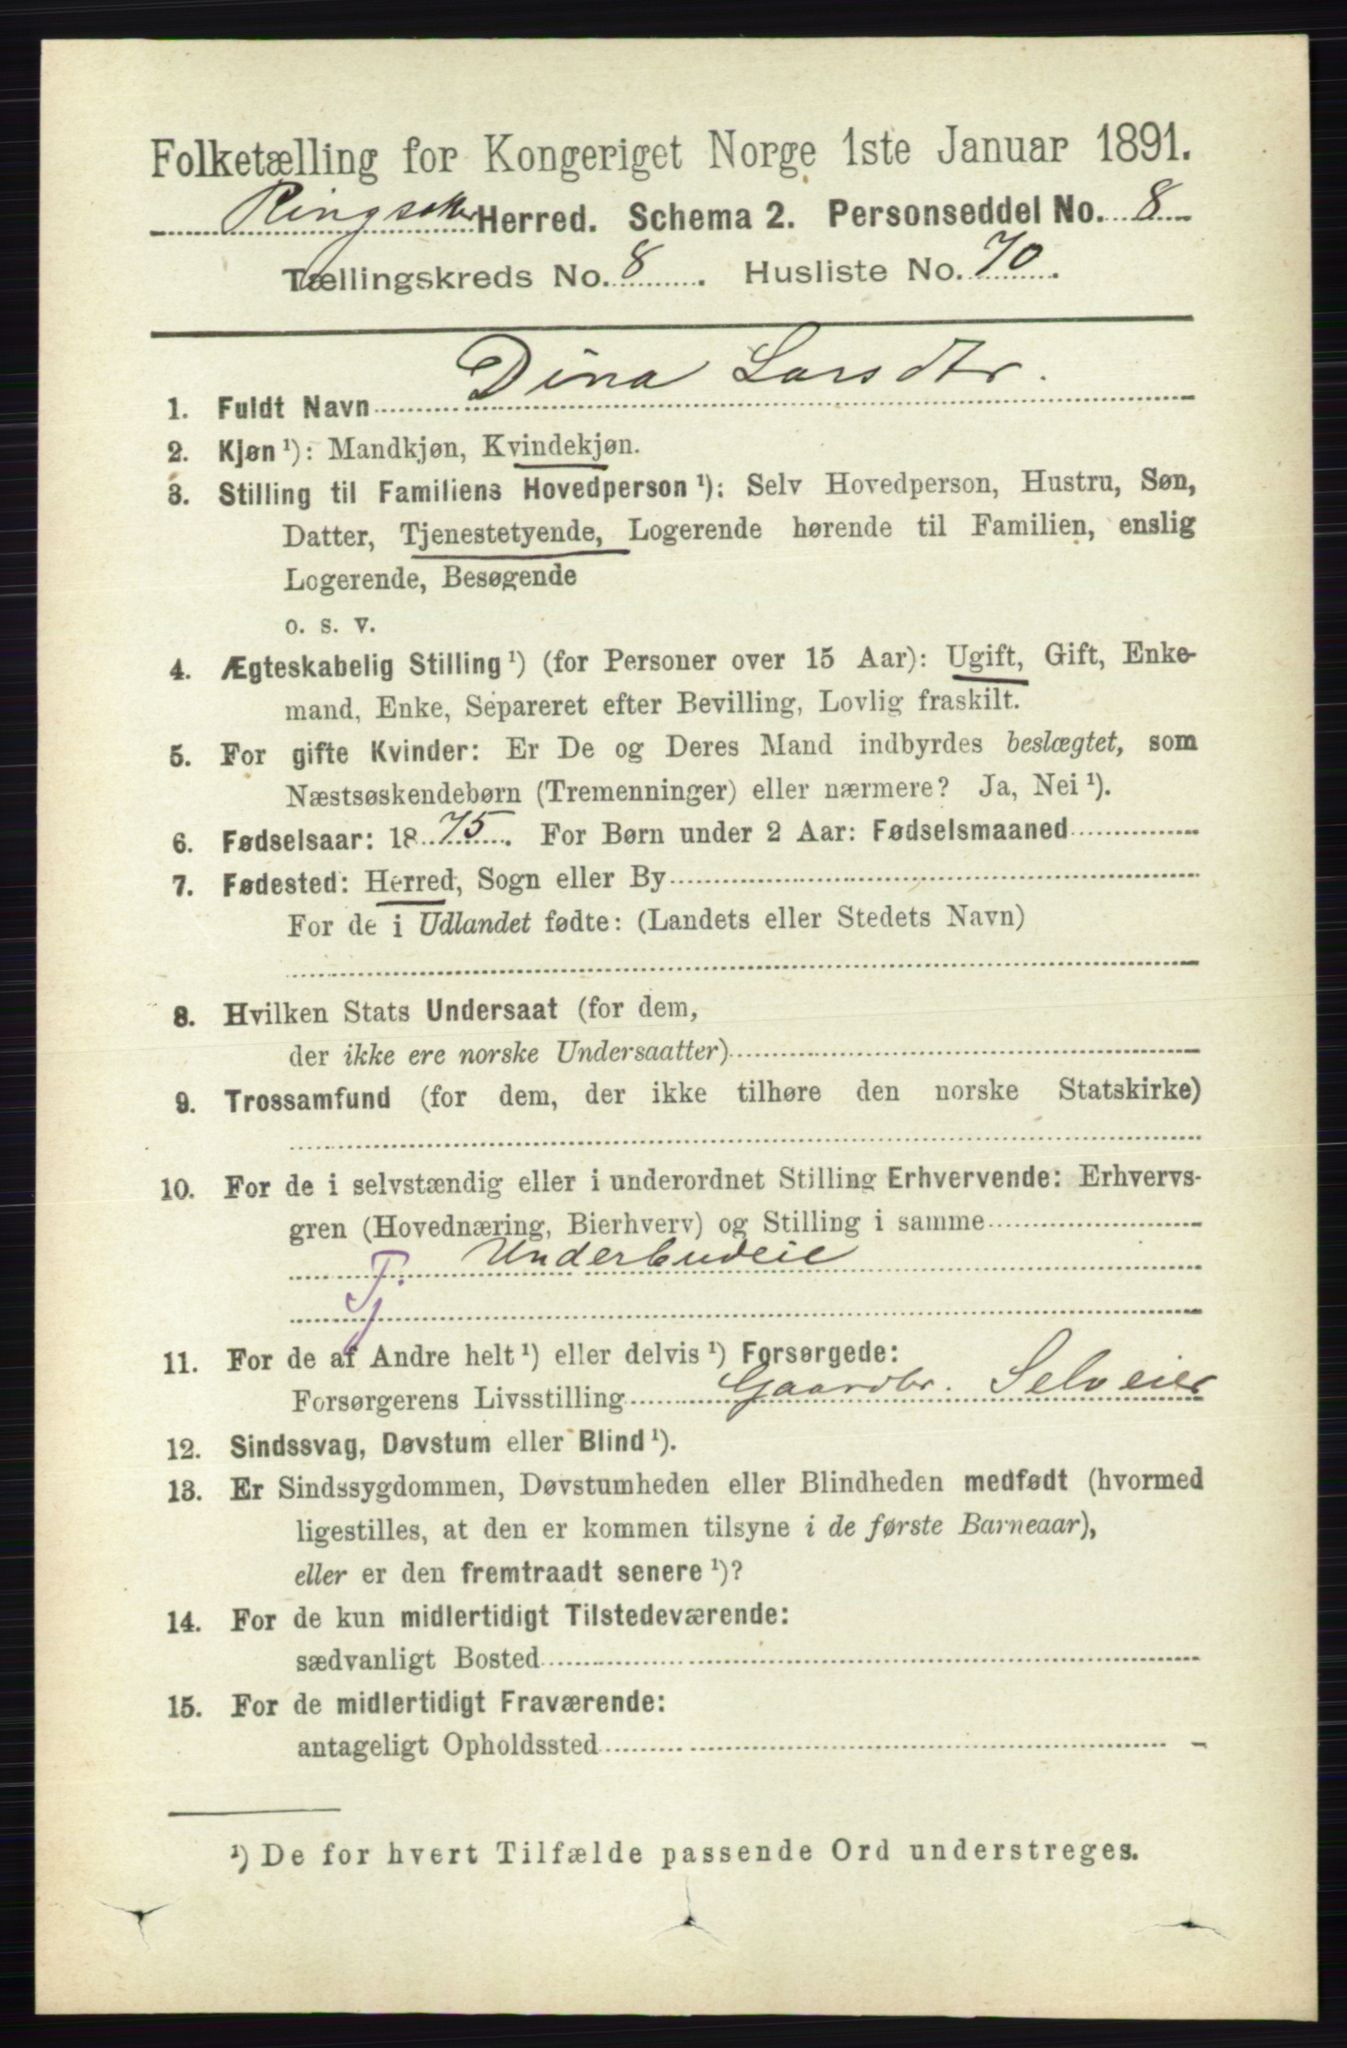 Folketælling for Kongeriget Norge 1ste Januar 1891.
Ringsaker Herred. Schema 2. Personseddel No. 8
Tællingskreds No. 8. Husliste No. 70.
1. Fuldt Navn Dina Larsdtr.
2. Kjøn ¹): Mandkjøn, Kvindekjøn.
3. Stilling til Familiens Hovedperson ¹): Selv Hovedperson, Hustru, Søn,
Datter, Tjenestetyende, Logerende hørende til Familien, enslig
Logerende, Besøgende
o. s. v.
4. Ægteskabelig Stilling ¹) (for Personer over 15 Aar): Ugift, Gift, Enke-
mand, Enke, Separeret efter Bevilling, Lovlig fraskilt.
5. For gifte Kvinder: Er De og Deres Mand indbyrdes beslægtet, som
Næstsøskendebørn (Tremenninger) eller nærmere? Ja, Nei ¹).
6. Fødselsaar: 1875. For Børn under 2 Aar: Fødselsmaaned
7. Fødested: Herred, Sogn eller By
For de i Udlandet fødte: (Landets eller Stedets Navn)
8. Hvilken Stats Undersaat (for dem,
der ikke ere norske Undersaatter)
9. Trossamfund (for dem, der ikke tilhøre den norske Statskirke)
10. For de i selvstændig eller i underordnet Stilling Erhvervende: Erhvervs-
gren (Hovednæring, Bierhverv) og Stilling i samme
Underbudeie
Tj.
11. For de af Andre helt ¹) eller delvis ¹) Forsørgede:
Forsørgerens Livsstilling Gaardbr. Selveier
12. Sindssvag, Døvstum eller Blind ¹).
13. Er Sindssygdommen, Døvstumheden eller Blindheden medfødt (hvormed
ligestilles, at den er kommen tilsyne i de første Barneaar),
eller er den fremtraadt senere ¹)?
14. For de kun midlertidigt Tilstedeværende:
sædvanligt Bosted
15. For de midlertidigt Fraværende:
antageligt Opholdssted
¹) De for hvert Tilfælde passende Ord understreges.